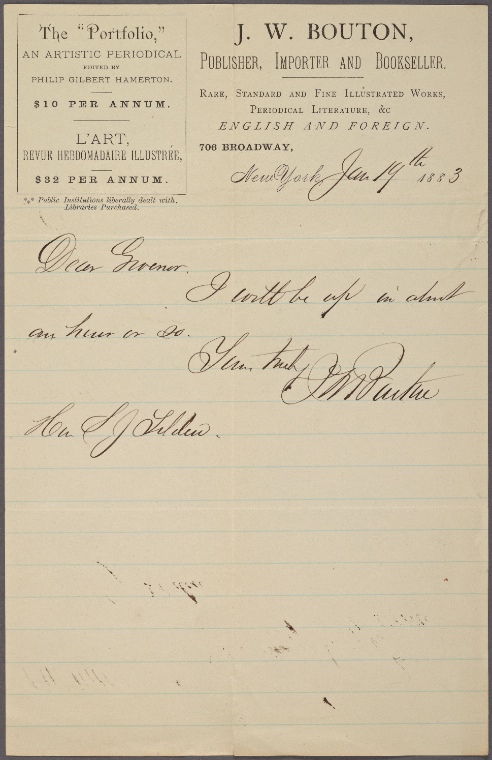 The "Portfolio,"
AN ARTISTIC PERIODICAL
EDITED BY
PHILIP GILBERT HAMERTON.
$10 PER ANNUM.
L'ART,
REVUE HEBDOMADAIRE ILLUSTRÉE,
$32 PER ANNUM.
*** Public Institutions liberally dealt with.
Libraries Purchased.
J. W. BOUTON,
PUBLISHER, IMPORTER AND BOOKSELLER.
RARE, STANDARD AND FINE ILLUSTRATED WORKS,
PERIODICAL LITERATURE, &C
ENGLISH AND FOREIGN.
706 BROADWAY,
New York Jan 19th 1883
Dear Govenor.
I will be up in about
an hour or so.
Yours truly
J W Bouton
Hon S J Tilden.